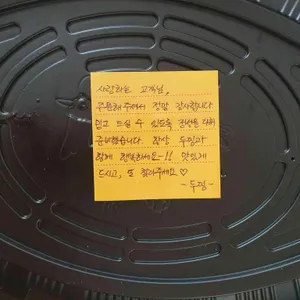 사랑하는 고객님,
주문해주셔서 정말 감사합니다
믿고 드실 수 있도록 정성을 다해
준비했습니다. 항상 두찜과
함께 행복하세요~!! 맛있게
드시고, 또 찾아주세요♡
-두찜-